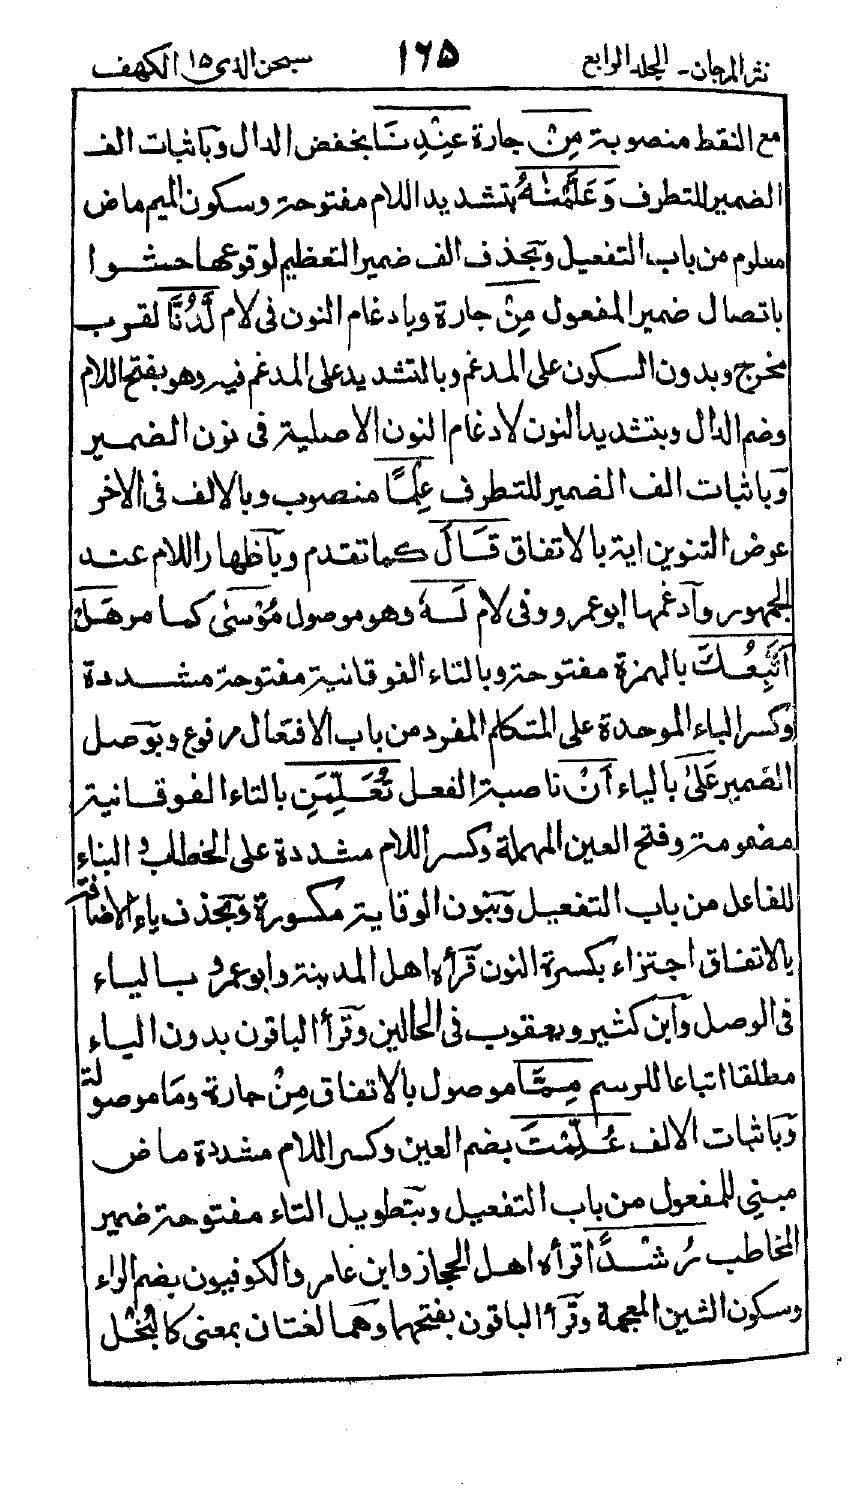 نثر المرجان - الجلد الرابع ١٦٥ سبحن الذى ١٥ الكهف
مع النقط منصوبة مِنْ جارة عِنْدِنَا بخفض الدال وباثبات الف
الضمير للتطرف وَعَلَّمْنٰهُ بتشديد اللام مفتوحة وسكون الميم ماض
معلوم من باب التفعيل وبحذف الف ضمير التعظيم لوقوعها حشوا
باتصال ضمير المفعول مِنْ جارة وبادغام النون فى لام لَّدُنَّا لقرب
مخرج وبدون السكون على المدغم وبالتشديد على المدغم فيه وهو بفتح اللام
وضم الدال وبتشديد النون لادغام النون الاصلية فى نون الضمير
وباثبات الف الضمير للتطرف عِلْمًا منصوب وبالالف فى الاخر
عوض التنوين اية بالاتفاق قَالَ كما تقدم وبآظهار اللام عند
الجمهور وآدغمها ابو عمرو وفى لام لَهٗ وهو موصول مُوْسٰى كما مر هَلْ
اَتَّبِعُكَ بالهمزة مفتوحة وبالتاء الفوقانية مفتوحة مشددة
وكسر الباء الموحدة على المتكلم المفرد من باب الافتعال مرفوع وبوصل
الضمير عَلٰى بالياء اَنْ ناصبة الفعل تُعَلِّمَنِ بالتاء الفوقانية
مضمومة وفتح العين المهملة وكسر اللام مشددة على الخطاب و البناء
للفاعل من باب التفعيل وبنون الوقاية مكسورة وبحذف ياء الاضافة
بالاتفاق اجتزاء بكسرة النون قرأه اهل المدينة وابو عمرو بالياء
فى الوصل وآبن كثير ويعقوب فى الحالين وقرأ الباقون بدون الياء
مطلقا اتباعا للرسم مِمَّا موصول بالاتفاق مِنْ جارة ومَا موصولة
وباثبات الالف عُلِّمْتَ بضم العين وكسر اللام مشددة ماض
مبنى للمفعول من باب التفعيل وبتطويل التاء مفتوحة ضمير
المخاطب رُشْدًا قرأه اهل الحجاز وابن عامر والكوفيون بضم الراء
وسكون الشين المعجمة وقرأ الباقون بفتحهما وهما لغتان بمعنى كالبُخْل